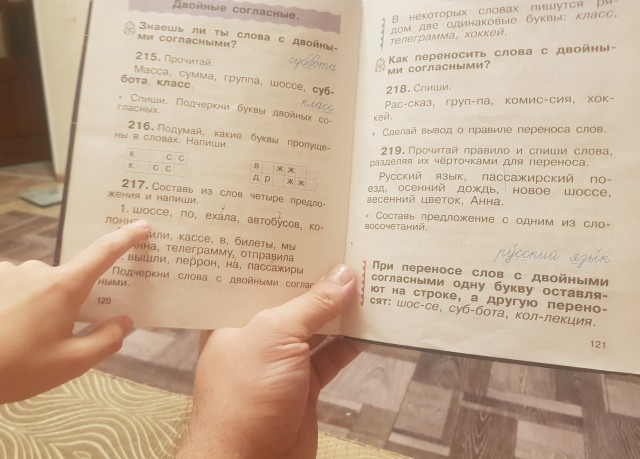 Двойные согласные.
Знаешь ли ты слова с двойны-
ми согласными?
215. Прочитай.
суббота
Масса, сумма, группа, шоссе, суб-
бота, класс.
класс
• Спиши. Подчеркни буквы двойных со-
гласных.
216. Подумай, какие буквы пропуще-
ны в словах. Напиши.
к сс
к сс
в жж
др жж
217. Составь из слов четыре предло-
жения и напиши.
1. шоссе, по, ехала, автобусов, ко-
лонна
или, кассе, в, билеты, мы
Анна, телеграмму, отправила
вышли, перрон, на, пассажиры
Подчеркни слова с двойными соглас-
ными.
120
В некоторых словах пишутся ря-
дом две одинаковые буквы: класс,
телеграмма, хоккей.
Как переносить слова с двойны-
ми согласными?
218. Спиши.
Рас-сказ, груп-па, комис-сия, хок-
кей.
• Сделай вывод о правиле переноса слов.
219. Прочитай правило и спиши слова,
разделяя их чёрточками для переноса.
Русский язык, пассажирский по-
езд, осенний дождь, новое шоссе,
весенний цветок, Анна.
• Составь предложение с одним из сло-
восочетаний.
русский язык
При переносе слов с двойными
согласными одну букву оставля-
ют на строке, а другую перено-
сят: шос-се, суб-бота, кол-лекция.
121